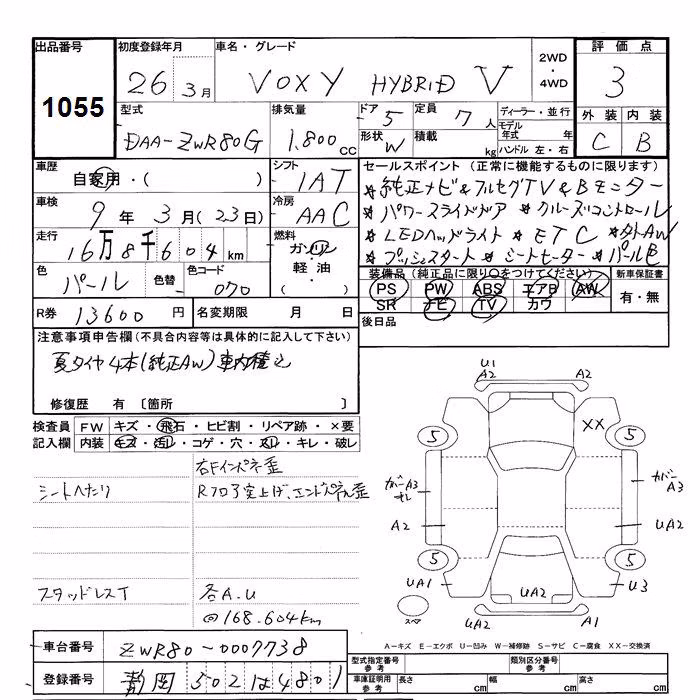 出品番号 初度登録年月 車名・グレード 2WD・4WD 評価点
1055 26 3月 VOXY HYBRID V 3
型式 排気量 ドア 5 定員 7人 ディーラー・並行 外装 内装
DAA-ZWR80G 1,800cc 形状 W 積載 kg モデル年式 年式 C B
ハンドル 左・右
車歴 自家用・( ) シフト IAT
セールスポイント(正常に機能するものに限ります)
車検 9年3月(23日) 冷房 AAC
★純正ナビ&フルセグTV&Bモニター
★パワースライドドア ★クルーズコントロール
★LEDヘッドライト ★ETC ★外AW
★プッシュスタート ★シートヒーター ★パールB
走行 16万8千604km 燃料 ガソリン 軽油・( )
色 パール 色替 色コード 070
装備品(純正品に限り〇をつけてください) 新車保証書
PS PW ABS エアB AW 有・無
SR ナビ TV カワ
R券 13600円 名変期限 月 日
後日品
注意事項申告欄(不具合内容等は具体的に記入して下さい)
夏タイヤ4本(純正AW)車内積込
修復歴 有〔箇所 〕
検査員 FW キズ・飛石・ヒビ割・リペア跡・×要
記入欄 内装 キズ・汚れ・コゲ・穴・スレ・キレ・破レ
右Fインパネ歪
シートへたり Rフロア突上げ、エンドパネル歪
スタッドレスT 各A.U
@168.604km
U1
A2 A2
XX
5 5
カバーA3
カバーA3
A2 UA2
5 5
UA1 UA2 U3
スペア A2 A1
A-キズ E-エクボ U-凹み W-補修跡 S-サビ C-腐食 XX-交換済
車台番号 ZWR80-0007738
型式指定番号 参考 類別区分番号 参考
登録番号 静岡 502 は 4801
車庫証明用 参考 長さ cm 幅 cm 高さ cm